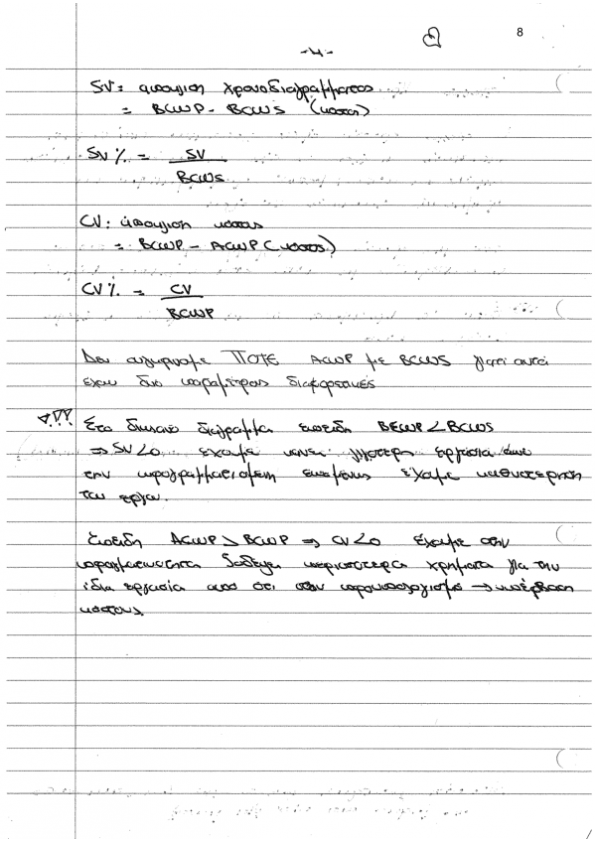 8
-4-
SV: απόκλιση χρονοδιαγράμματος
= BCWP - BCWS (κόστη)
SV% = SV
BCWS
CV: απόκλιση κόστους
= BCWP - ACWP (κόστος)
CV% = CV
BCWP
Δεν συγκρίνουμε ΠΟΤΕ ACWP με BCWS γιατί αυτά
έχουν δυο παραμέτρους διαφορετικές
!!! Στο διπλανό διάγραμμα επειδή BCWP < BCWS
⇒ SV<0 έχουμε κάνει λιγότερη εργασία από
την προγραμματισμένη επομένως έχουμε καθυστέρηση
του έργου.
Επειδή ACWP > BCWP ⇒ CV<0 έχουμε στην
πραγματικότητα ξοδέψει περισσότερα χρήματα για την
ίδια εργασία από ότι στον προϋπολογισμό → υπέρβαση
κόστους